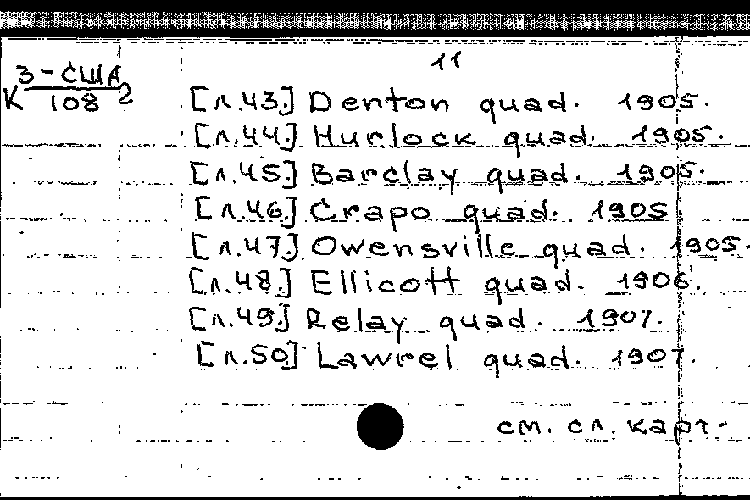 11
К 3-США/108 2
[л.43.] Denton quad. 1905.
[л.44.] Hurlock quad. 1905.
[л.45.] Barclay quad. 1905.
[л.46.] Crapo quad. 1905
[л.47.] Owensville quad. 1905.
[л.48.] Ellicott quad. 1906.
[л.49] Relay quad. 1907.
[л.50] Lawrel quad. 1907.
см. сл. карт.